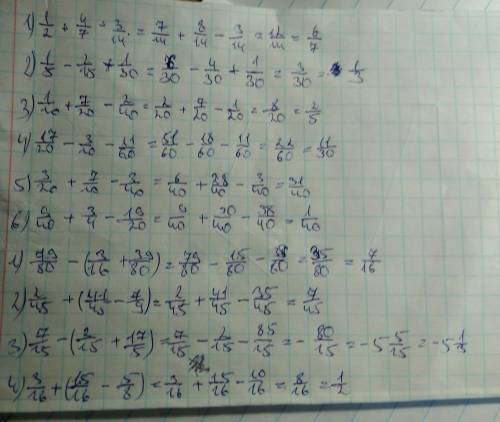 1) 1/2 + 4/7 - 3/14 = 7/14 + 8/14 - 3/14 = 12/14 = 6/7
2) 1/5 - 2/15 + 1/30 = 6/30 - 4/30 + 1/30 = 3/30 = 1/5
3) 1/10 + 7/20 - 2/40 = 2/20 + 7/20 - 1/20 = 8/20 = 2/5
4) 17/20 - 3/10 - 11/60 = 51/60 - 18/60 - 11/60 = 22/60 = 11/30
5) 3/20 + 7/10 - 3/40 = 6/40 + 28/40 - 3/40 = 31/40
6) 9/40 + 3/4 - 19/20 = 9/40 + 30/40 - 38/40 = 1/40
1) 79/80 - (3/16 + 39/80) = 79/80 - 15/80 - /80 = 35/80 = 7/16
2) 2/45 + (41/45 - 7/9) = 2/45 + 41/45 - 35/45 = 7/45
3) 7/15 - (2/15 + 17/5) = 7/15 - 2/15 - 85/15 = - 80/15 = -5 5/15 = -5 1/3
4) 3/16 + (15/16 - 5/8) = 3/16 + 15/16 - 10/16 = 8/16 = 1/2